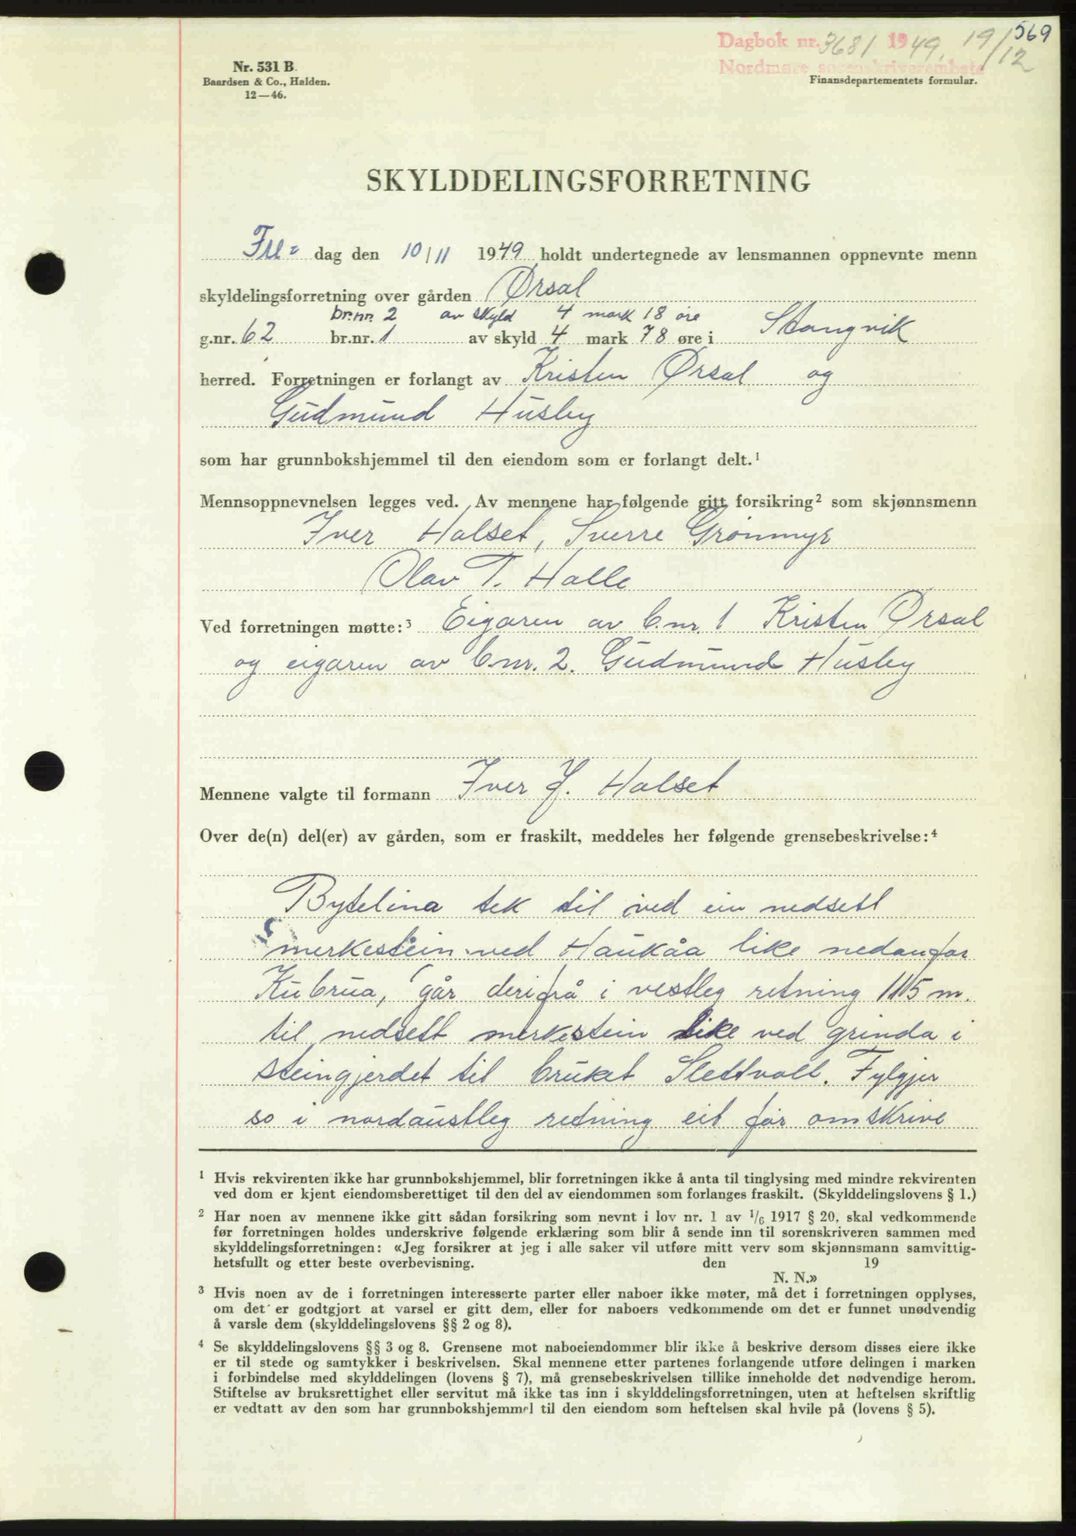 569
Dagbok nr. 3681 1949. 19/12
Nordmøre sorenskriverembete
Nr. 531 B
Baardsen & Co., Halden.
12—46.
Finansdepartementets formular.
SKYLDDELINGSFORRETNING
Fre- dag den 10/11 1949 holdt undertegnede av lensmannen oppnevnte menn
skyldelingsforretning over gården Ørsal
br.nr. 2 av skyld 4 mark 18 øre
g.nr. 62 br.nr. 1 av skyld 4 mark 78 øre i Stangvik
herred. Forretningen er forlangt av Kristen Ørsal og
Gudmund Husby
som har grunnbokshjemmel til den eiendom som er forlangt delt.¹
Mennsoppnevnelsen legges ved. Av mennene har følgende gitt forsikring² som skjønnsmenn
Iver Halset, Sverre Grønmyr
Olav T. Halle
Ved forretningen møtte:³ Eigaren av b.nr. 1 Kristen Ørsal
og eigaren av b.nr. 2. Gudmund Husby
Mennene valgte til formann Iver J. Halset
Over de(n) del(er) av gården, som er fraskilt, meddeles her følgende grensebeskrivelse:⁴
Bytelina tek til ved ein nedsett
merkestein ved Haukåa like nedanfor
Kubrua, går derifrå i vestleg retning 115 m.
til nedsett merkestein like ved grinda i
steingjerdet til bruket Slettvoll. Fylgjer
so i nordaustleg retning eit før omskrive
¹ Hvis rekvirenten ikke har grunnbokshjemmel, blir forretningen ikke å anta til tinglysing med mindre rekvirenten
ved dom er kjent eiendomsberettiget til den del av eiendommen som forlanges fraskilt. (Skylddelingslovens § 1.)
² Har noen av mennene ikke gitt sådan forsikring som nevnt i lov nr. 1 av ¹/₆ 1917 § 20, skal vedkommende
før forretningen holdes underskrive følgende erklæring som blir å sende inn til sorenskriveren sammen med
skylddelingsforretningen: «Jeg forsikrer at jeg i alle saker vil utføre mitt verv som skjønnsmann samvittig-
hetsfullt og etter beste overbevisning. den 19
N. N.»
³ Hvis noen av de i forretningen interesserte parter eller naboer ikke møter, må det i forretningen opplyses,
om det er godtgjort at varsel er gitt dem, eller for naboers vedkommende om det er funnet unødvendig
å varsle dem (skylddelingslovens §§ 2 og 8).
⁴ Se skylddelingslovens §§ 3 og 8. Grensene mot naboeiendommer blir ikke å beskrive dersom disses eiere ikke
er til stede og samtykker i beskrivelsen. Skal mennene etter partenes forlangende utføre delingen i marken
i forbindelse med skylddelingen (lovens § 7), må grensebeskrivelsen tillike inneholde det nødvendige herom.
Stiftelse av bruksrettighet eller servitut må ikke tas inn i skylddelingsforretningen, uten at heftelsen skriftlig
er vedtatt av den som har grunnbokshjemmel til den eiendom som heftelsen skal hvile på (lovens § 5).